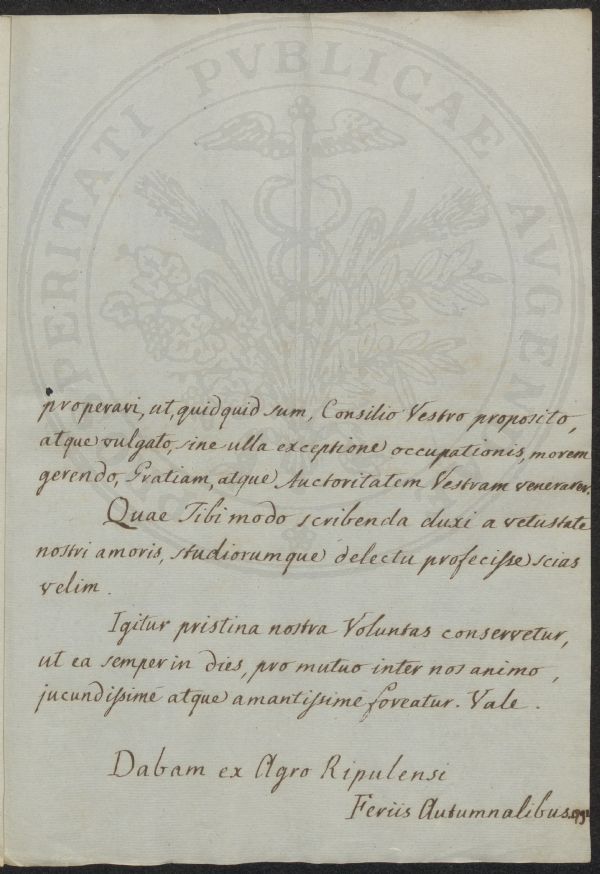 PROSPERITATI PVBLICAE AVGEN
properavi, ut, quidquid sum, Consilio Vestro proposito,
atque vulgato, sine ulla exceptione occupationis, morem
gerendo, Gratiam, atque Auctoritatem Vestram venerarer.
Quae Tibi modo scribenda duxi a vetustate
nostri amoris, studiorumque delectu profecisse scias
velim.
Igitur pristina nostra Voluntas conservetur,
ut ea semper in dies, pro mutuo inter nos animo,
jucundissimè atque amantissime foveatur. Vale.
Dabam ex Agro Ripulensi
Feriis Autumnalibus